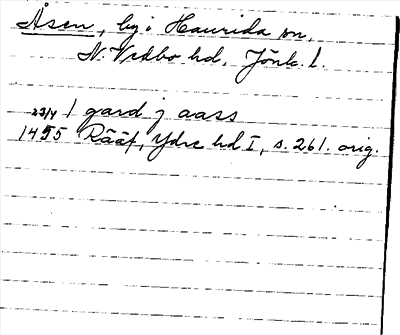 Åsen, by i Haurida sn,
N. Vedbo hd, Jönk. l.
23/4 1 gard j aass
1455 Rääf, Ydre hd I, s. 261. orig.